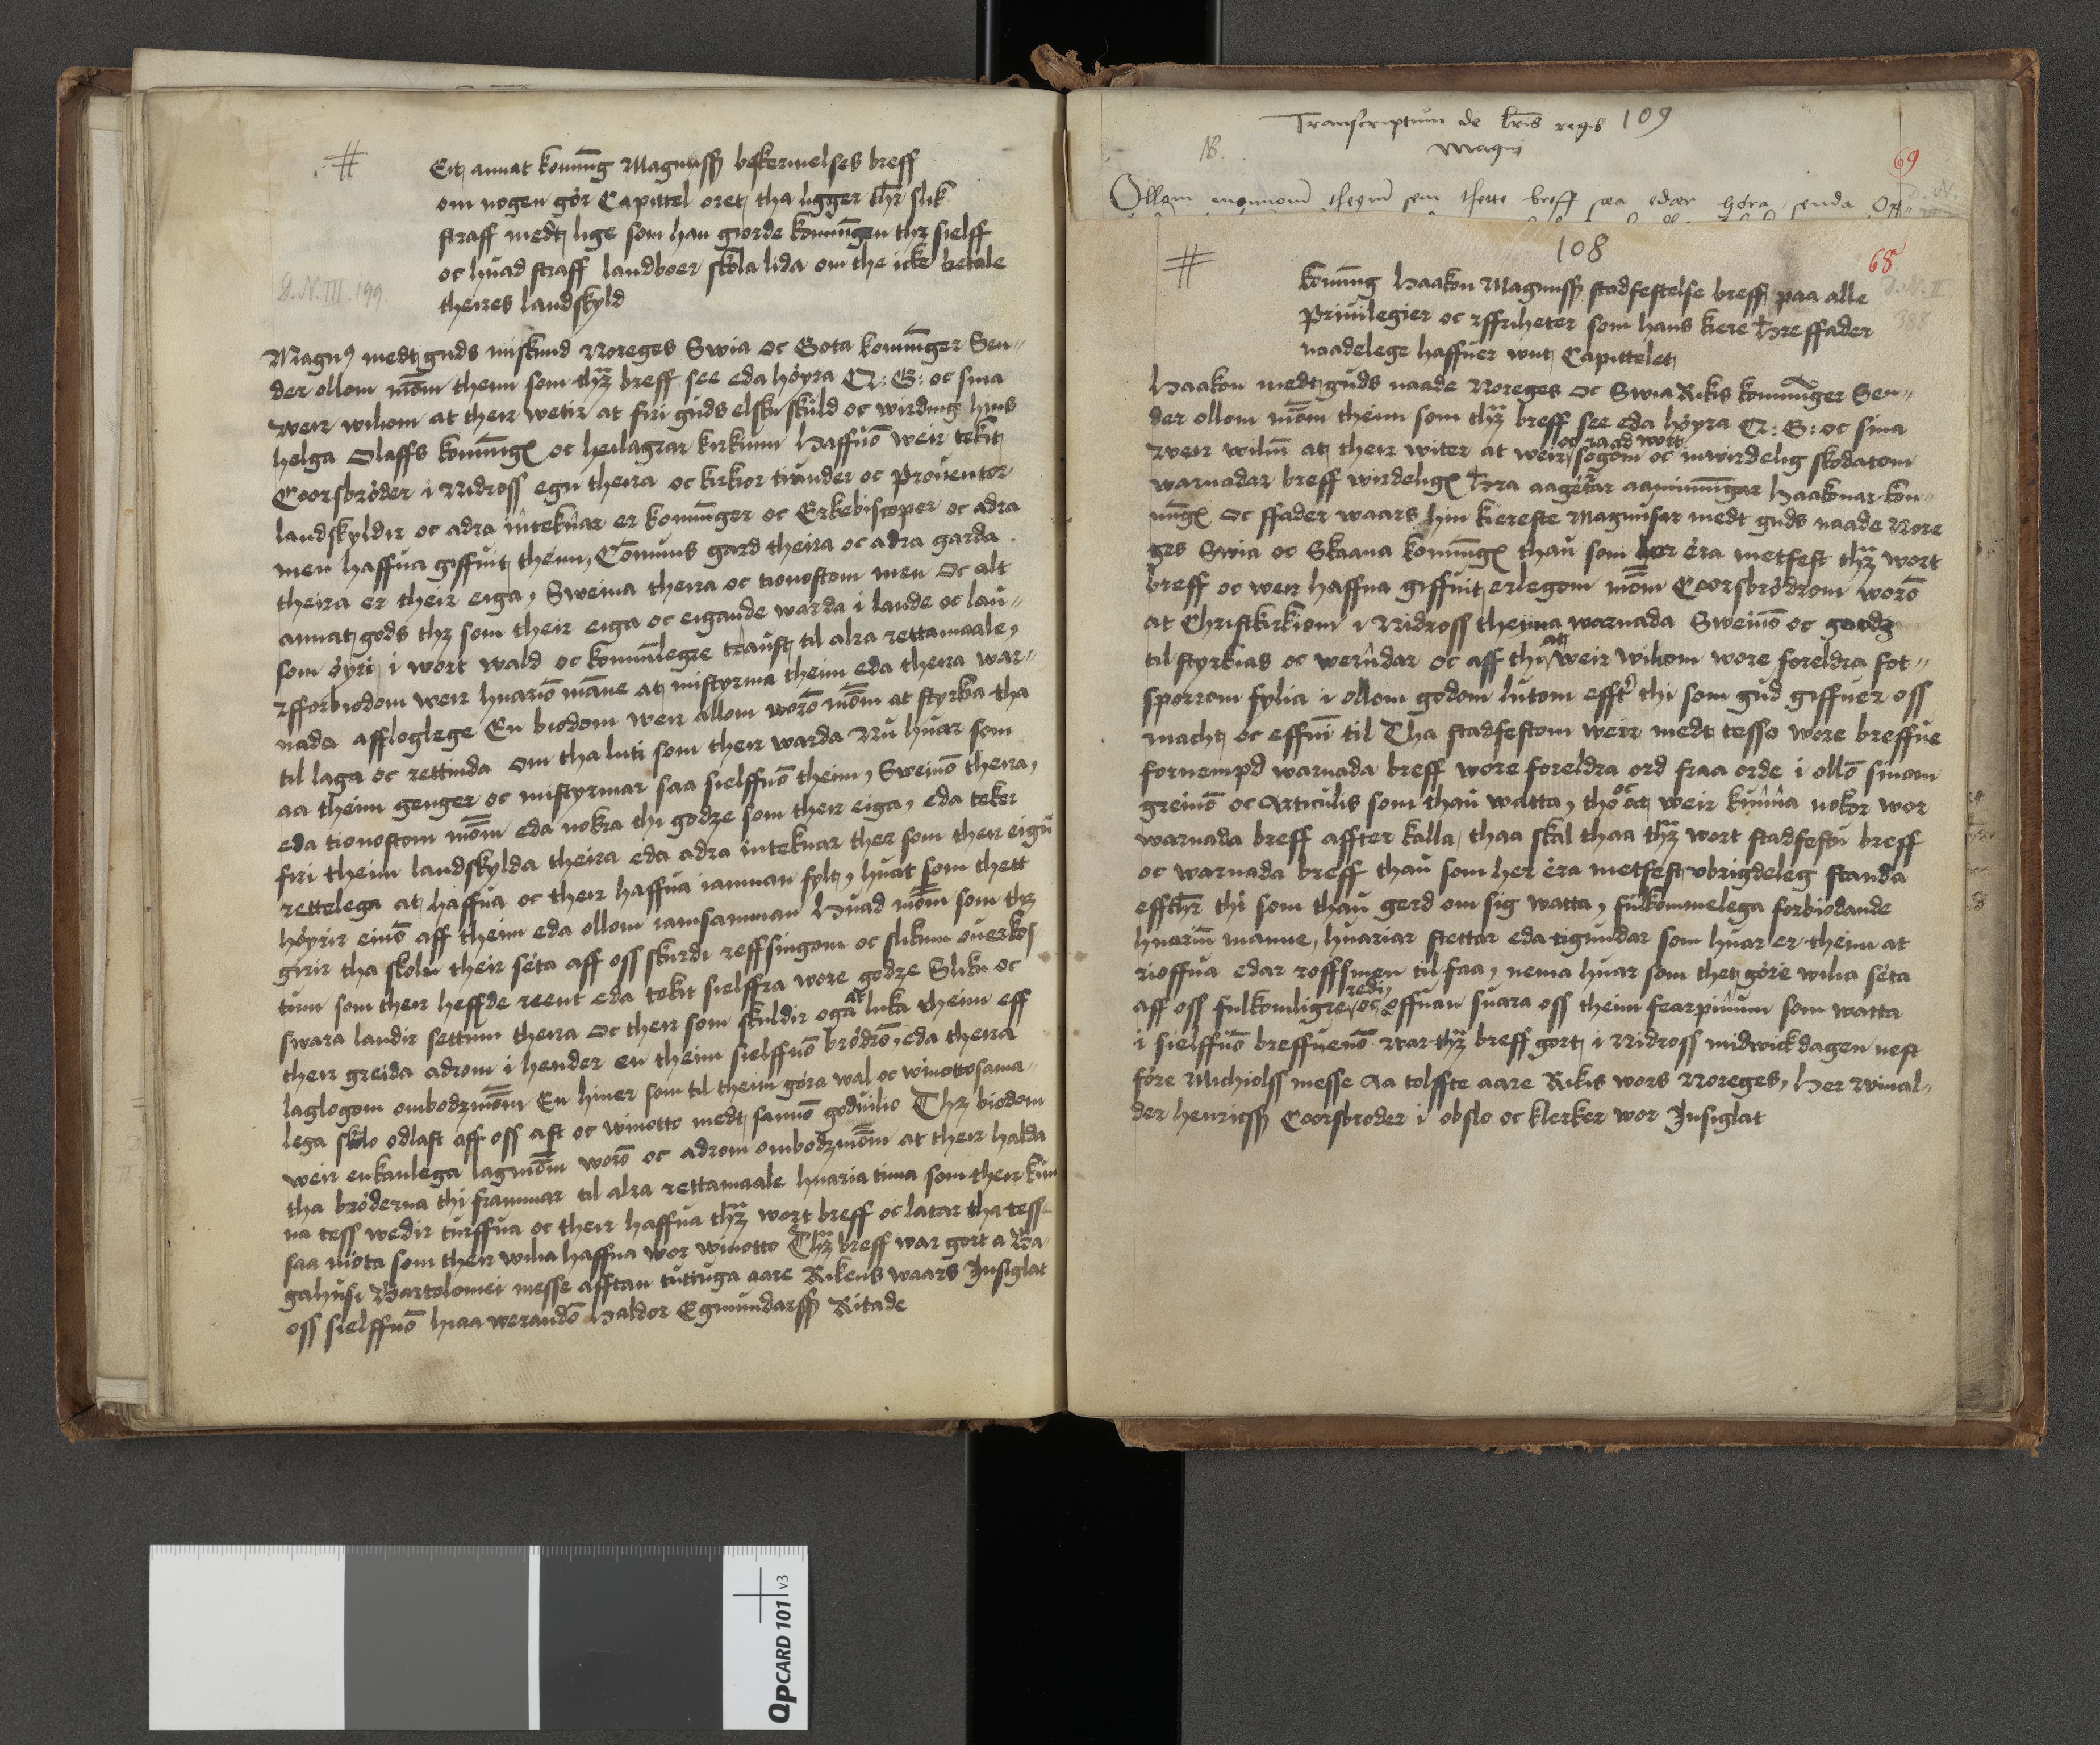 Eitt annat koning Magnussz beskermelses breff
om nogen gör Capittel oret, tha ligger ther slik
straff medt lige som han giorde konungen thz sielff
oc huad straff landboer skola lida om the icke betale
theires landskyld
D. N. III. 199.
Magnus medt guds miskund Noreges Swia oc Gota konunger Sen„
der ollom mōm theim som thz breff see eda höyra Q: G: oc sina
weir wiliom at their wetir at firi guds elsku skuld oc wirding hins
helga Olaffs konungs oc heilagrar kirkiunn Haffuō weir tekit
Coorsbröder i Nidross egn theira oc kirkior tiunder oc Prouentor
landskyldir oc adra inteknar er konunger oc Erkebiscoper oc adra
men haffua giffuit theim, Comuns gard theira oc adra garda
theira er their eiga, Sweina theira oc tionostom men oc alt
annat gods thz som their eiga oc eigande warda i lande oc lau„
som öyri i wort wald oc konunlegre traust til alra rettamaale,
fforbiodom weir huariō māne at mistyrma theim eda theira war„
nada affloglege En biodom weir allom worō mōm at styrka tha
til laga oc rettinda om tha luti som their warda Nu huar som
aa theim genger oc mistyrmar saa sielffuō theim, Sweinō theira,
eda tionostom mōm eda nokra thi godze som their eiga, eda teker
firi theim landskylda theira eda adra inteknar ther som their eigu
rettelega at haffua oc their haffua iamnan fylt, huat som thett
höyrir einō aff theim eda ollom iamsamman Huad mōm som thz
girir tha skolu their seta aff oss skurdi reffsingom oc slikum ouerkos
tum som their heffde reent eda tekit sielffra wore godze Slikt oc
swara landir settum theira oc their som skuldir oga at luka theim eff
their greida adrom i hender en theim sielffuō brödrō, eda theira
laglogom ombodzmōm En hiner som til theim göra wal oc winottosama„
lega skolo odlast aff oss ast oc winotto medt sannō goduilio Thz biodom
weir enkanlega lagmōm worō oc adrom ombodzmōm at their halda
tha bröderna thi frammar til alra rettamaale huaria tima som their kun
na tess wedir turffua oc their haffua thz wort breff oc latar tha tess
saa niota som their wilia haffua wor winotto Thz breff war gort a Ba„
gahusi Bartolomei messe afftan tuttuga aare Rikens waars Insiglat
oss sielffuō hiaa werandō Haldor Egmundarssz Ritade
Transcriptum de lris regis 109
Magni
N.
69
D. N.
Ollom monnom theym sem thette breff sea edær höra senda
108
68
D. N. II
388
Konung Haakon Magnussz stadfestelse breff paa alle
Priuilegier oc ffriheter som hans kiere Herre ffader
naadelege haffuer unt Capittelet
Haakon medt guds naade Noreges oc Swia Rikis konunger Sen„
der ollom mōm theim som thz breff see eda höyra Q: G: oc sina
weir wilim at their witer at weir sogom oc inwirdelig skodatom
oc raad wort
warnadar breff wirdeligs Herra aagetar aaminningar Haakonar kon„
nungs oc ffader waars hin kiereste Magnusar medt guds naade Nore
ges Swia oc Skaana konungs thau som her era metfest thz wort
breff oc weir haffua giffuit erlegom mōm Coorsbrödrom worō
at Christkirkiom i Nidross theima warnada Sweinō oc
til styrkias oc werndar oc aff thi at weir wiliom wore foreldra fot„
sporrom fylia i ollom godom lutom effter thi som gud giffuer oss
macht oc effni til Tha stadfestom weir medt tesso wore breffue
fornempd warnada breff wore foreldra ord fraa orde i ollō sinom
greinō oc Articulis som thau watta, tho oc at weir kunna nokor wor
warnada breff affter kalla, thaa skal thaa thz wort stadfestu breff
oc warnada breff thau som her era metfest obrigdeleg standa
effther thi som thau gerd om sig watta, fulkommelega forbiodande
huarium manne, huariar stettar eda tigundar som huar er theim at
rioffua edar roffsmen til faa, nema huar som thet göre wilia seta
aff oss fulkomligre redi, oc offuan suara oss theim fearpinum som watta
i sielffuō breffuenō War thz breff gort i Nidross midwickdagen nest
före Michiolss messe Aa tolffte aare Rikis wors Noreges, Her Winal„
der Henricssz Coorsbroder i Obslo oc klerker wor Insiglat
QpCARD 101 v3